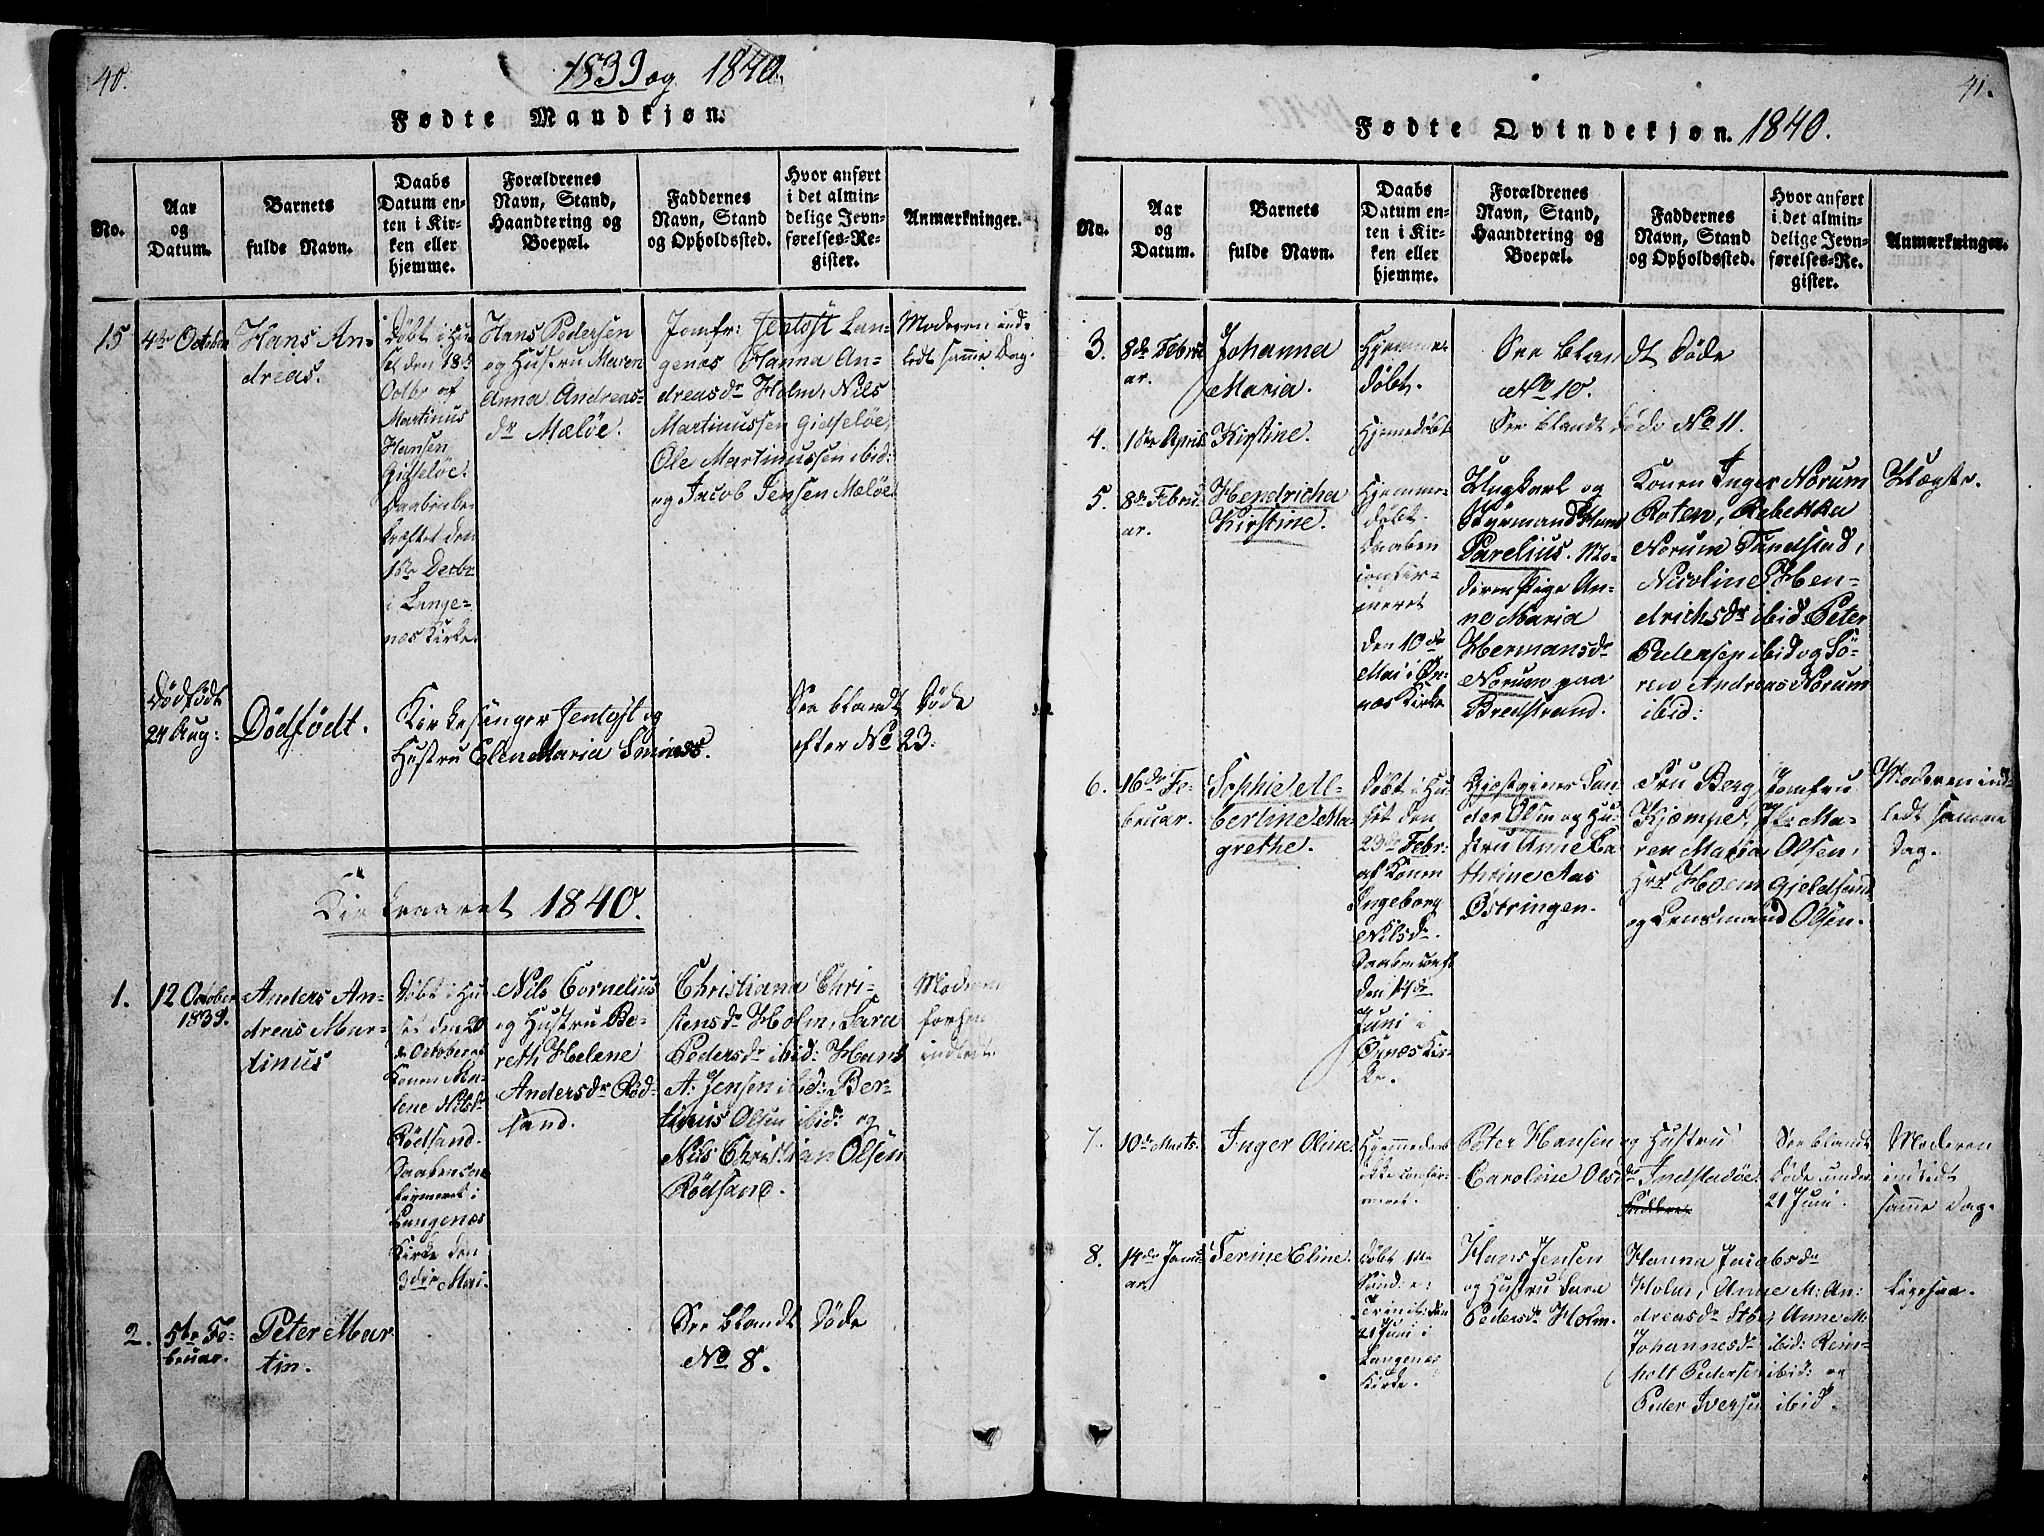 40.
1839 og 1840.
Fødte Mandkjøn.
No.
Aar og Datum.
Barnets fulde Navn.
Daabs Datum enten i Kirken eller hjemme.
Forældrenes Navn, Stand, Haandtering og Boepæl.
Faddernes Navn, Stand og Opholdssted.
Hvor anført i det almindelige Jevnførelses-Register.
Anmærkninger.
15
4de October
Hans Andreas.
Døbt i Huset den 18de Octbr af Martinus Hansen Gidseløe. Daaben bekræftet den 1ste Decbr i Langenæs Kirke.
Hans Pedersen og Hustru Maren Anna Andreasdr Meløe.
Jomfr: Jentoft Langenæs Hanna Andreasdr Holm, Nils Martinussen Gidseløe, Ole Martinussen ibid: og Jacob Jensen Meløe
Moderen indledt samme Dag.
Dødfødt
24 Aug:
Dødfødt.
Kirkesanger Jentoft og
Hustru Elen Maria Smines.
See blandt Døde
efter No 23.
Kirkeaaret 1840.
1.
12 October
1839.
Anders Andreas Martinus
Døbt i Huset den 20de October af Konen Malene Nilsdr Rödsand. Langenæs Kirke den 3die Mai.
Nils Cornelius og Hustru Bereth Helene Andersdr Rödsand.
Christiana Christensdr Holm, Sara Pedersdr ibid: Hans A: Jensen ibid: Bertinus Olsen ibid: og Nils Christian Olsen Rödsand.
Moderen forhen indledt
2.
5te Februar.
Peter Martin.
See blandt Døde
No 8.
41.
Fødte Qvindekjøn. 1840.
No.
Aar og Datum.
Barnets fulde Navn.
Daabs Datum enten i Kirken eller hjemme.
Forældrenes Navn, Stand, Haandtering og Boepæl.
Faddernes Navn, Stand og Opholdssted.
Hvor anført i det almindelige Jevnførelses-Register.
Anmærkninger.
3.
8de Februar.
Johanna Maria.
Hjemmedøbt.
See blandt Døde
No 10.
4.
1ste April
Kirstine.
Hjemmedøbt
See blandt Døde No 11.
5.
8de Februar.
Hendricha Kirstine.
Hjemmedøbt. Daaben confirmeret den 10de Mai i Ørnæs Kirke
Ungkarl og Styrmand Hans Parelius. Moderen Pige Anne Maria Hermansdr Norum paa Bredstrand.
Konen Inger Norum Roten, Rebekka Norum Tundsiad, Nicoline Hendrichsdr ibid Peter Pedersen ibid og Sören Andreas Norum ibid:
Uægte.
6.
16de Februar.
Sophie Albertine Magrethe.
Døbt i Huset den 23de Febr: af Konen Ingeborg Nilsdr. Daaben conf: den 14de Juni i Ørnæs Kirke.
Gjæstgiver Sander Olsen og Hustru Anne Cathrine Aas Østringen.
Fru Berg, Jomfru Kjempe, Maren Maria Olsen, Hr Holm Gjeldsund og Lensmand Olsen.
Moderen indledt samme Dag.
7.
10de Marts.
Inger Oline.
Hjemmedøbt ikke confirmeret.
Peter Hansen og Hustru
Caroline Olsdr Indstadöe.
See blandt Døde under 21 Juni.
Moderen indledt samme Dag.
8.
14de Januar
Serine Eline.
Døbt 1ste Sönd: e: Trinit: den 21 Juni i Langenæs Kirke.
Hans Jensen og Hustru Sara Pedersdr Holm.
Hanna Jacobsdr Holm, Anne M: Andreasdr Stöt, Anne M: Johannesdr ibid: Reinholt Pedersen ibid: og Peder Iversen ibid.